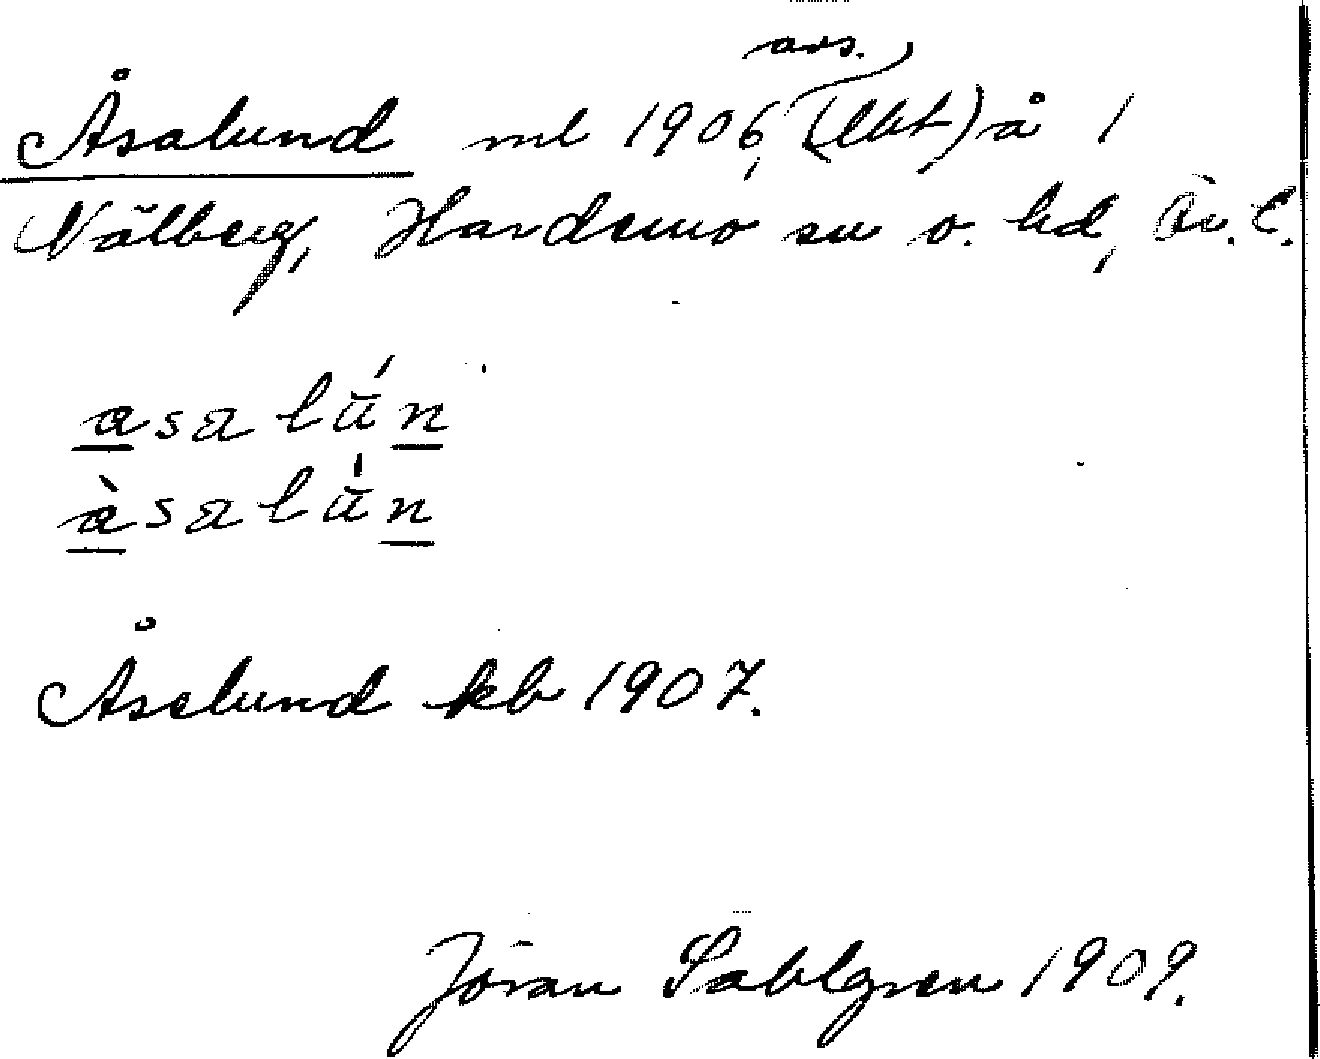 avs.
Åsalund ml 1906, (lht) å 1
Nälberg, Hardemo sn o. hd, Ör. l.
asalún
àsalún
Åselund kb 1907.
Jöran Sahlgren 1909.